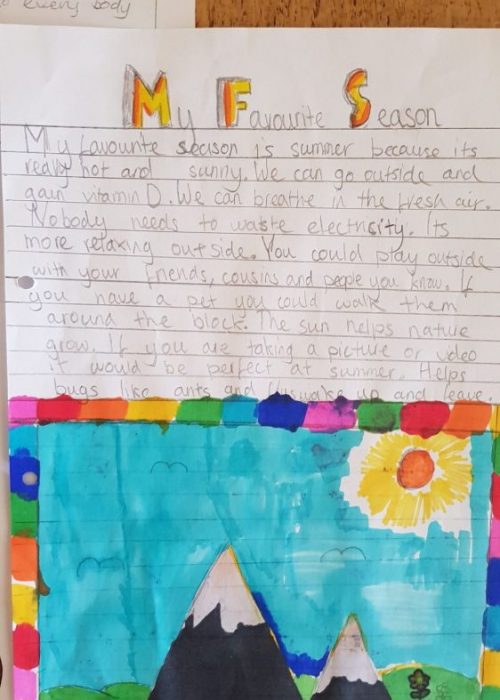 every body
My Favourite Season
My favourite season is summer because its
really hot and sunny. We can go outside and
gain vitamin D. We can breathe in the fresh air.
Nobody needs to waste electricity. Its
more relaxing outside. You could play outside
with your friends, cousins and people you know. If
you have a pet you could walk them
around the block. The sun helps nature
grow. If you are taking a picture or video
it would be perfect at summer. Helps
bugs like ants and wake up and leave.